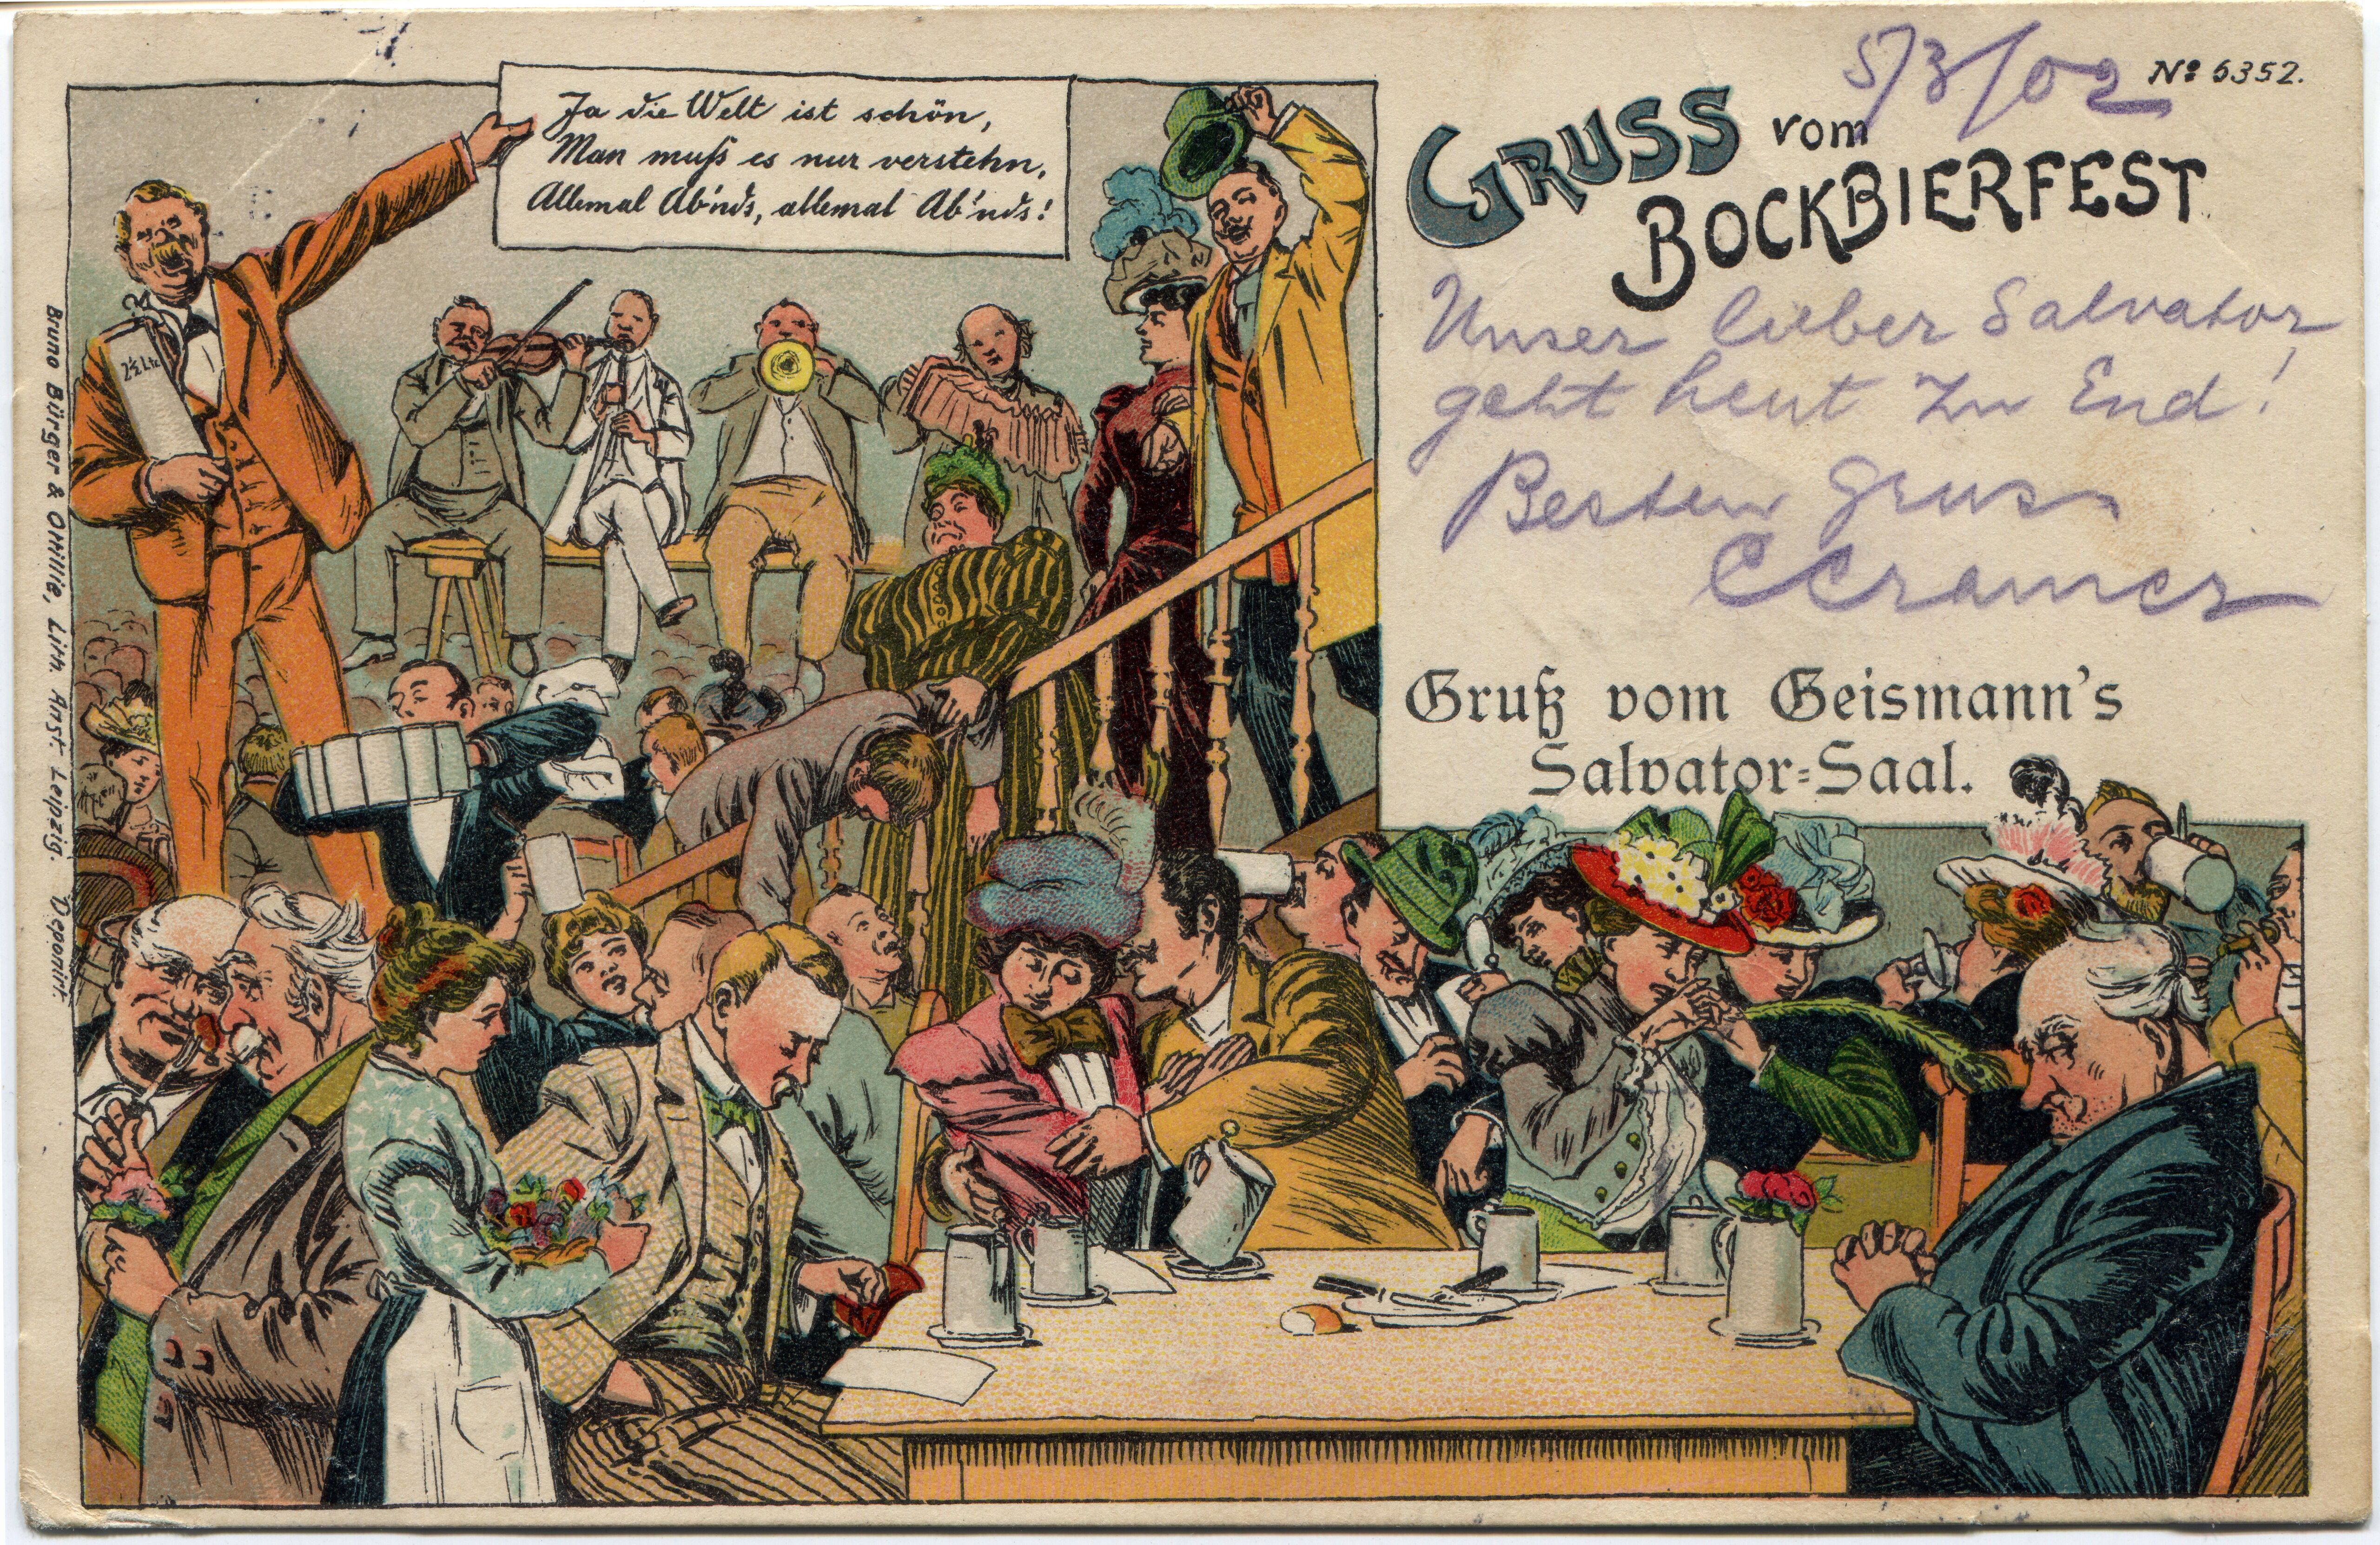 5/3/02
No 6352.
Ja die Welt ist schön,
Man muß es nur verstehn,
Allemal Ab'nds, allemal Ab'nds!
GRUSS vom
BOCKBIERFEST
Unser lieber Salvator
geht heut zu End!
Besten Gruss
CCramer
Gruß vom Geismann's
Salvator=Saal.
2½ Ltr
Bruno Bürger & Ottillie, Lith. Anst. Leipzig. Deponirt.